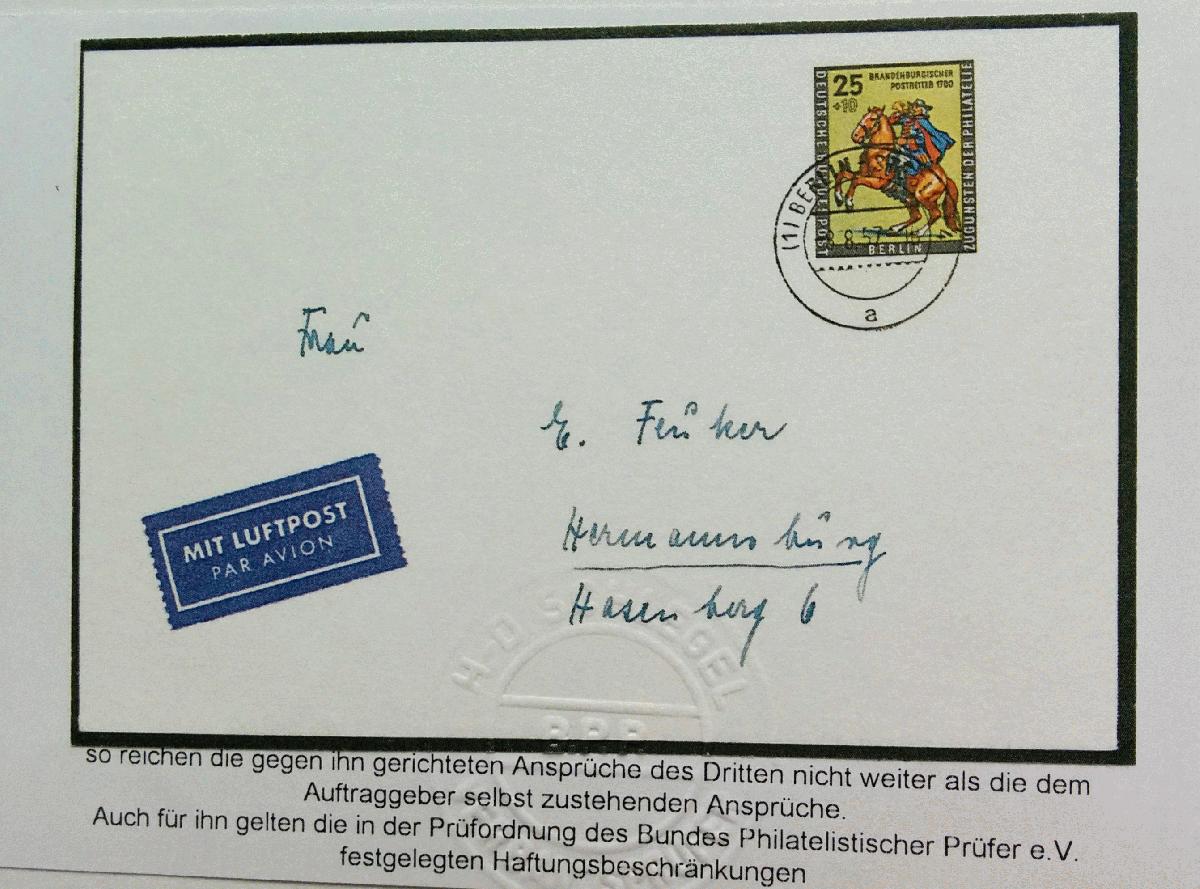 25 BRANDENBURGISCHER
+10 POSTREITER 1700
DEUTSCHE BUNDESPOST
ZUGUNSTEN DER PHILATELIE
BERLIN
(1) BERLIN
8.57
a
Frau
E. Feuker
Hermannsburg
Hasenberg 6
MIT LUFTPOST
PAR AVION
H-D SCHLEGEL
BPP
so reichen die gegen ihn gerichteten Ansprüche des Dritten nicht weiter als die dem
Auftraggeber selbst zustehenden Ansprüche.
Auch für ihn gelten die in der Prüfordnung des Bundes Philatelistischer Prüfer e.V.
festgelegten Haftungsbeschränkungen